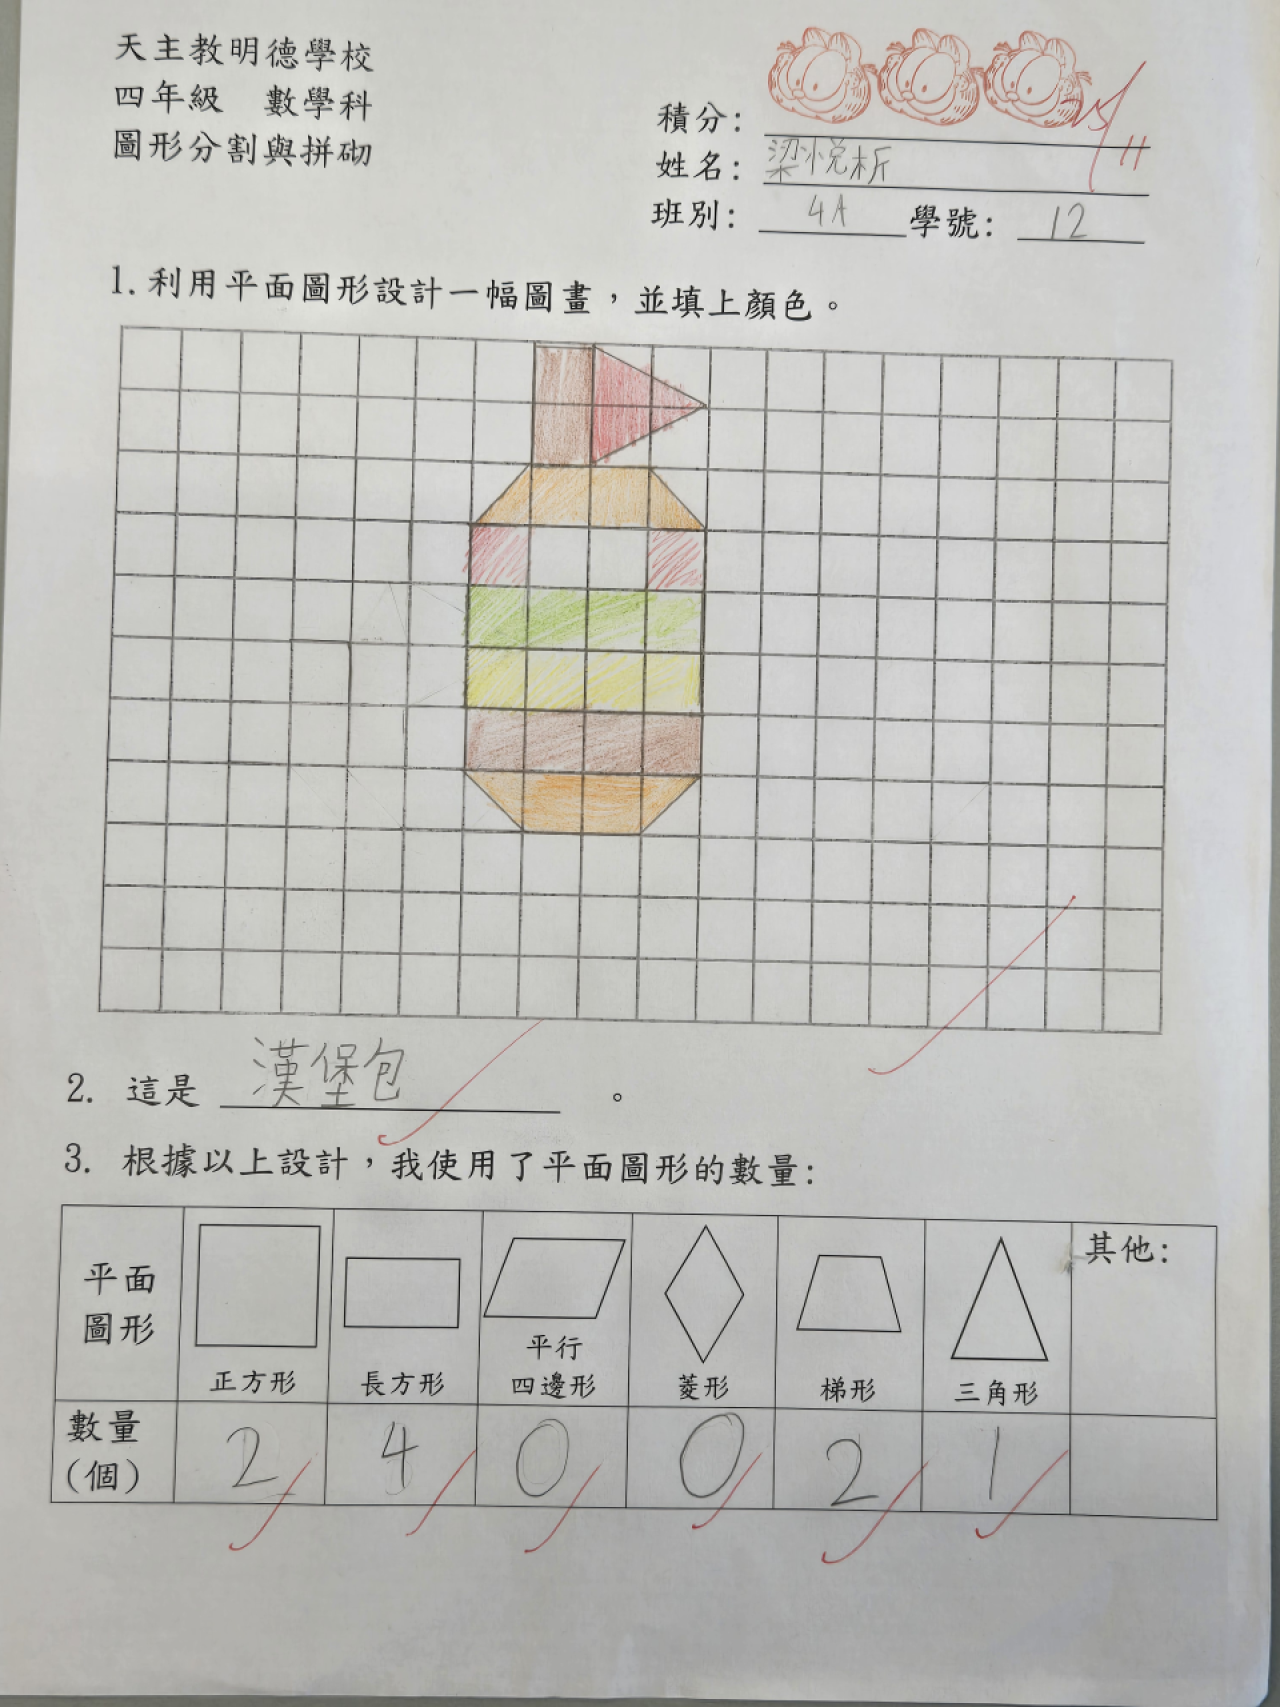 天主教明德學校
四年級 數學科
圖形分割與拼砌
積分:
11
姓名: 梁悅析
班別: 4A 學號: 12
1. 利用平面圖形設計一幅圖畫，並填上顏色。
2. 這是 漢堡包 。
3. 根據以上設計，我使用了平面圖形的數量:
平面圖形 正方形 長方形 平行四邊形 菱形 梯形 三角形 其他:
數量(個) 2 4 0 0 2 1